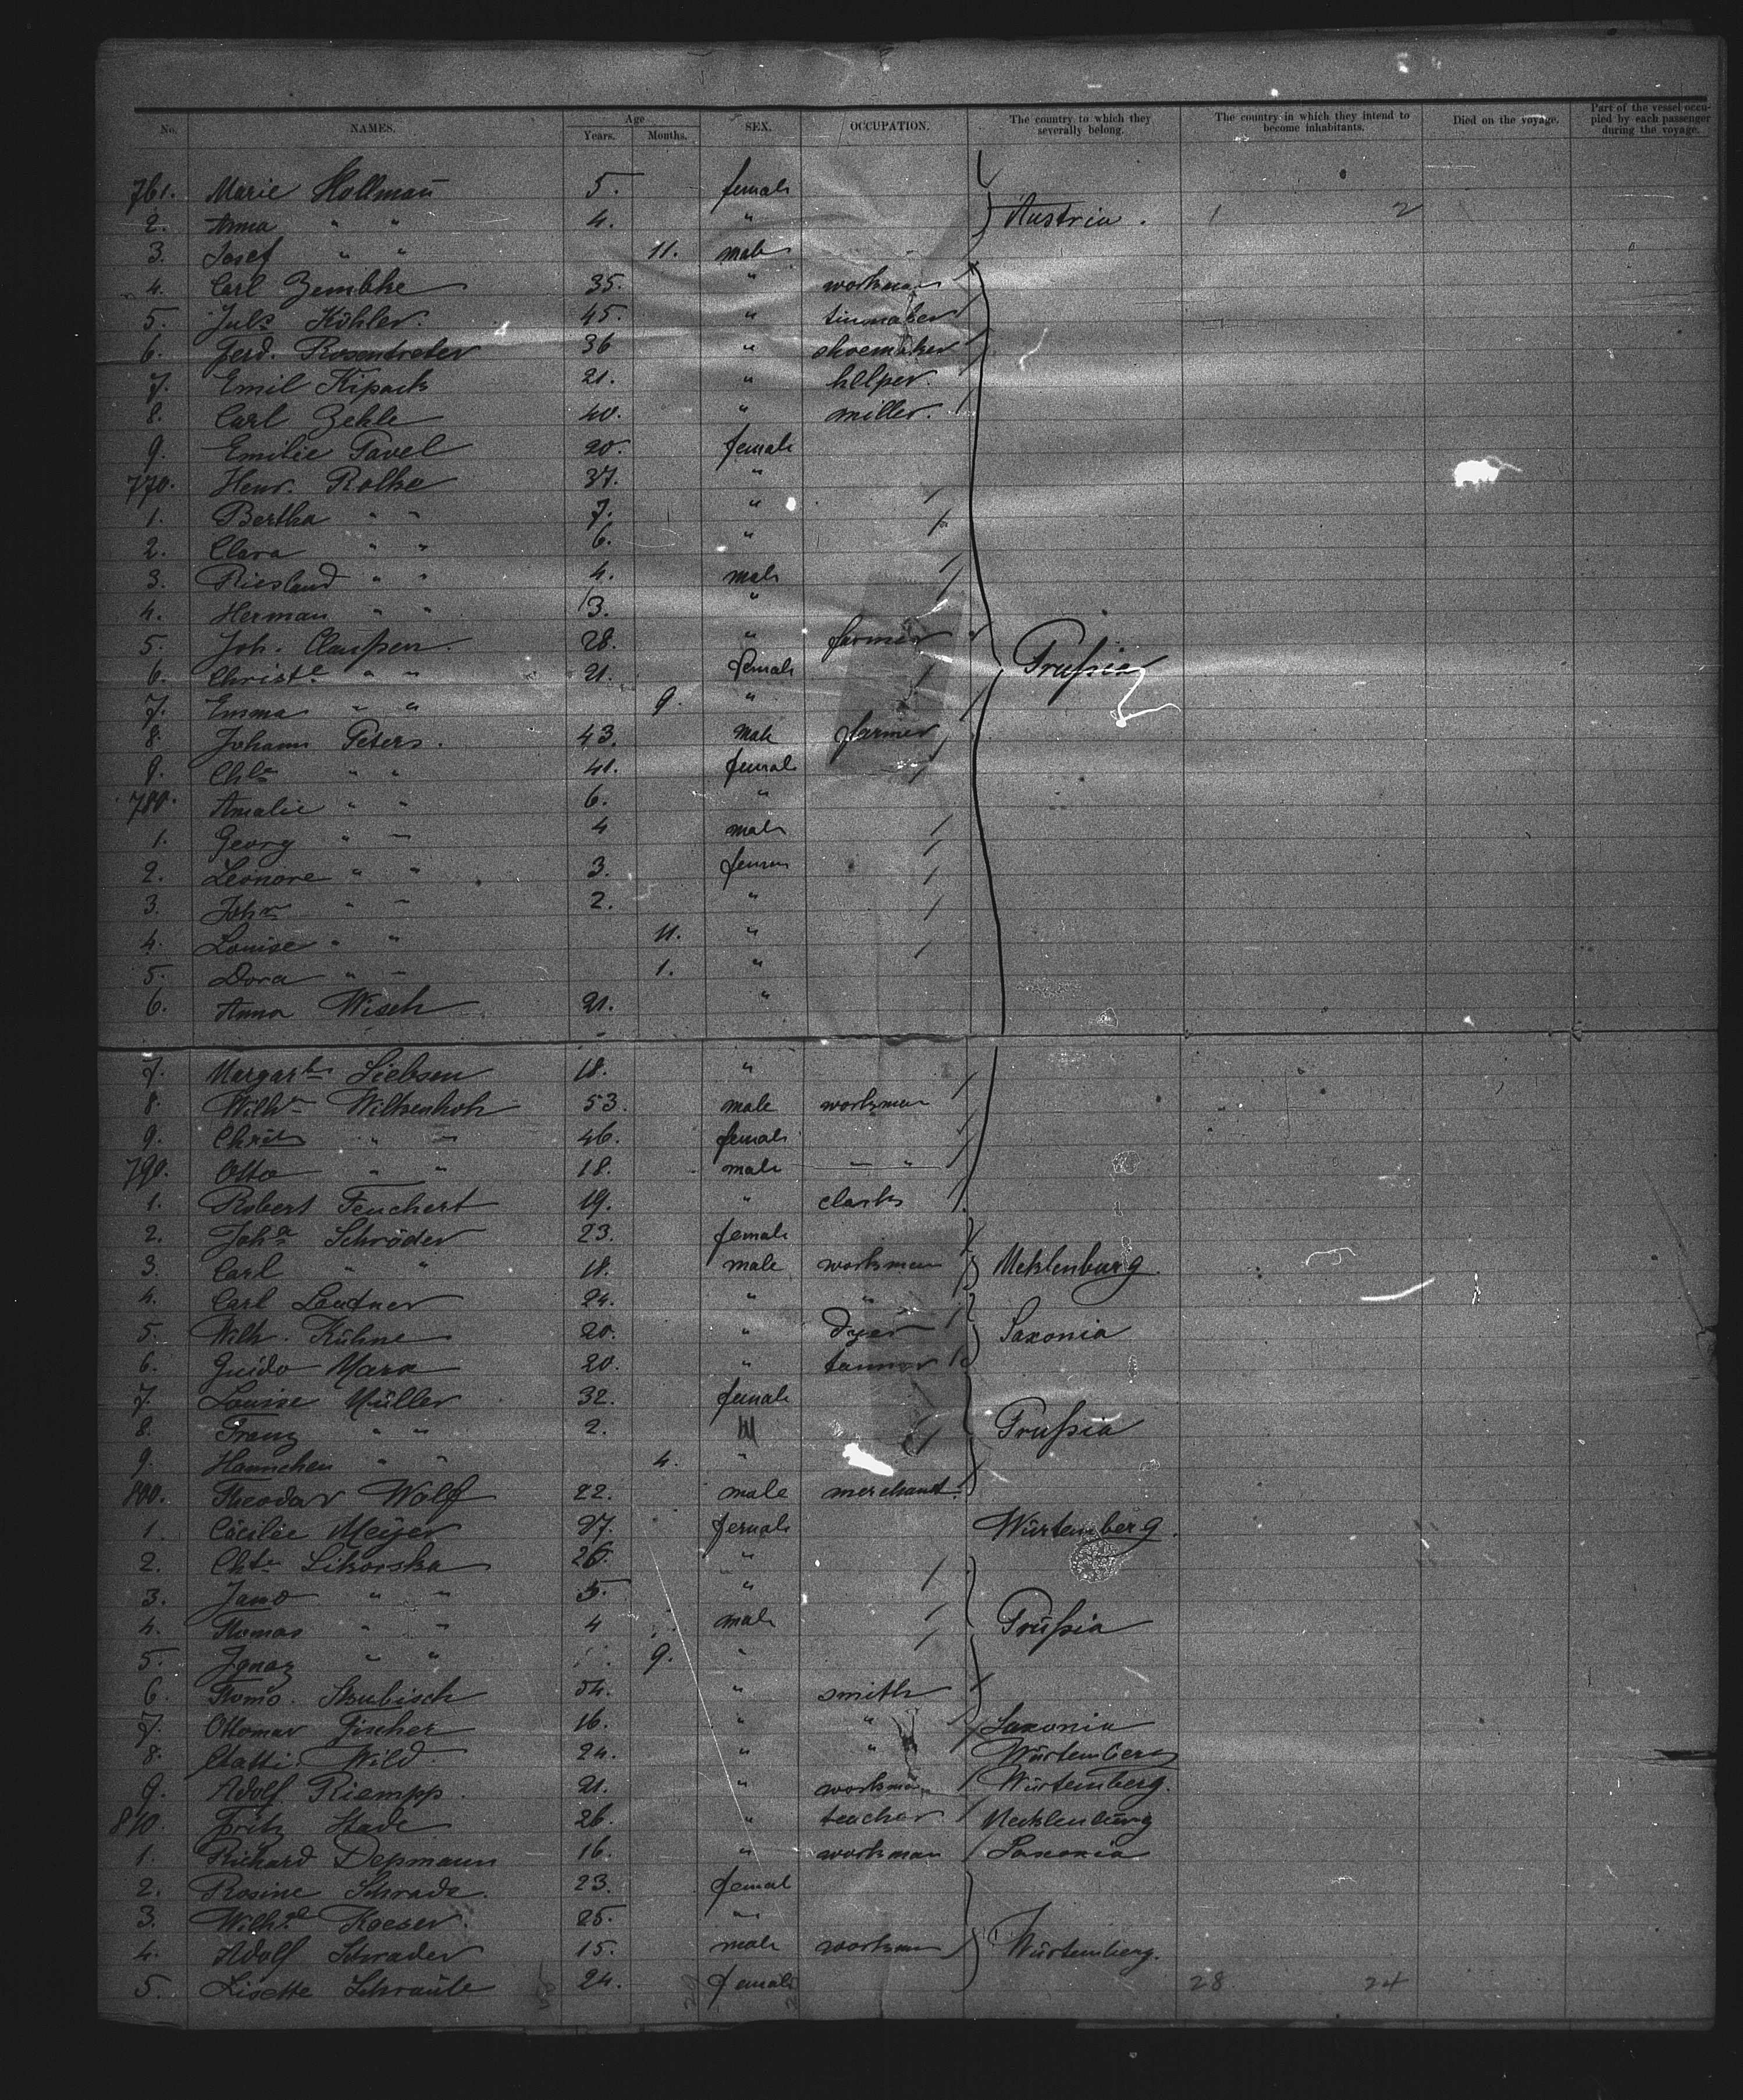 No. NAMES. Age Years. Months. SEX. OCCUPATION. The country to which they severally belong. The country in which they intend to become inhabitants. Died on the voyage. Part of the vessel occupied by each passenger during the voyage.
761. Marie Hollmañ 5. female
2. Anna " " 4. " Austria. 1 2
3. Josef " " 11. male
4. Carl Zembke 35. " workman
5. Juls Köhler. 45. " tinmaker
6. Ferd. Rosentreter 36 " shoemaker
7. Emil Kipack 21. " helper.
8. Carl Zehle 40. " miller.
9. Emilie Pavel 20. female
770. Henr. Rolke 37. "
1. Bertha " " 7. "
2. Clara " " 6. "
3. " " 4. male
4. Herman " " 3. "
5. Joh. Claußen. 28. " farmer
6. Christe " " 21. female Prußia
7. Emma " " 9. "
8. Johann Peters. 43. male farmer
9. " " 41. female
780. Amalie " " 6. "
1. Georg " " 4 male
2. Leonore " " 3. female
3. " " 2. "
4. Louise " " 11. "
5. Dora " " 1. "
6. Anna Wisch 21. "
7. Liebsen 18. "
8. Wilhm 53. male workman
9. " " 46. female
790. Otto " " 18. male " "
1. Robert Feuchert 19. " clark
2. Joha Schröder 23. female
3. Carl " " 18. male workman Meklenburg.
4. Carl Lautner 24. " "
5. Wilh. Kühne 20. " dyer Saxonia
6. Guido Marx 20. " tanner
7. Louise Müller 32. female
8. Franz " " 2. Prußia
9. Hannchen " " 4. "
800. Theodor Wolff 22. male merchant.
1. Cäcilie Meijer 27. female Würtemberg.
2. Chte Sikorska 26. "
3. " " 5. "
4. Thomas " " 4 male Prüßia
5. Ignaz " " 9. "
6. Skubisch 34. " smith
7. Ottomar Fischer 16. " " Saxonia
8. Wild. 24. " " Würtemberg
9. Adolf Riempp. 21. " workman Würtemberg.
810. Fritz Stade 26. " teacher Mecklenburg
1. Richard Depmann 16. " workman Saxonia
2. Rosine Schrade. 23. female
3. Kaeser. 25. "
4. Adolf Schrader 15. male workman Würtemberg.
5. Lisette 24. female 28 24